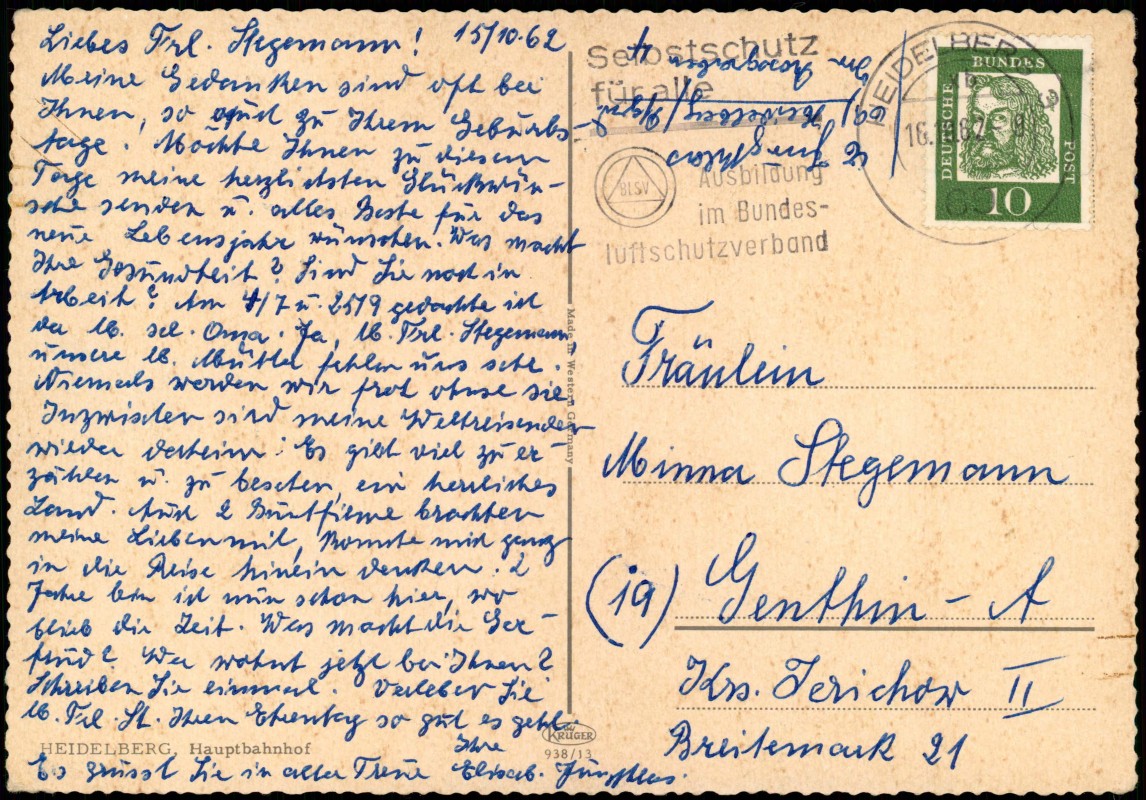 Liebes Frl. Stegemann! 15/10.62
Meine Gedanken sind oft bei
Ihnen, so auch zu Ihrem Geburts-
tage. Möchte Ihnen zu diesem
Tage meine herzlichsten Glückwün-
sche senden u. alles Beste für das
neue Lebensjahr wünschen. Was macht
Ihre Gesundheit? Sind Sie noch in
Arbeit? Am 4/7 u. 25/9 gedachte ich
der lb. sel. Oma. Ja, lb. Frl. Stegemann,
unsere lb. Muttel fehlen uns sehr.
Niemals werden wir froh ohne sie.
Inzwischen sind meine Weltreisenden
wieder daheim. Es gibt viel zu er-
zählen u. zu besehen, ein herrliches
Land. Auch 2 Buntfilme brachten
meine Lieben mit, konnte mich ganz
in die Reise hinein denken. 2
Jahre bin ich nun schon hier, wo
blieb die Zeit. Was macht die
Wer wohnt jetzt bei Ihnen?
Schreiben Sie einmal. Verleben Sie
lb. Frl. St. Ihren Ehrentag so gut es geht.
Ihre
Es grüsst Sie in alter Treue Elisab.
HEIDELBERG, Hauptbahnhof
KRÜGER
938/13
Made in Western Germany
Selbstschutz
für alle
BLSV
Ausbildung
im Bundes-
luftschutzverband
HEIDELBERG
DEUTSCHE
BUNDES
POST
10
69) Heidelberg
Fräulein
Minna Stegemann
(19) Genthin - A
Krs. Jerichow II
Breitemark 21